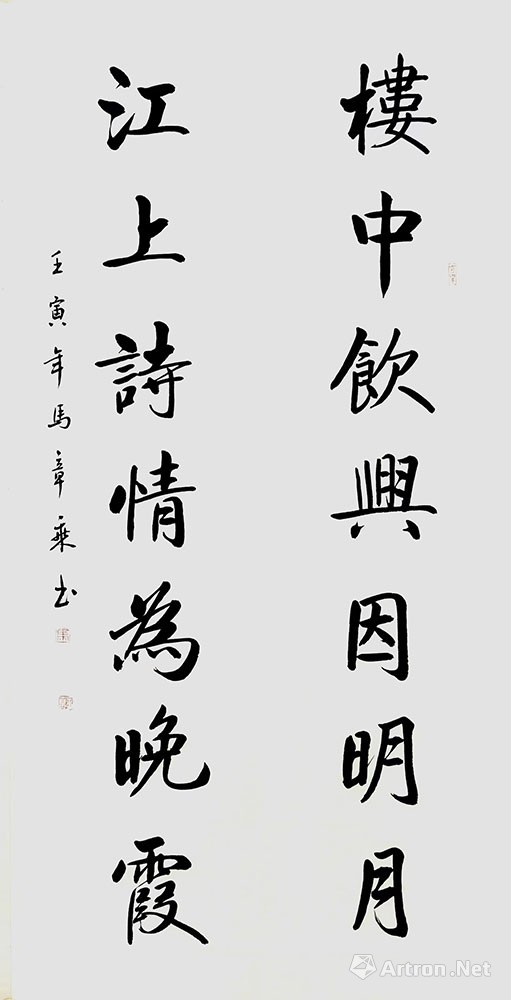 樓中飲興因明月
江上詩情為晚霞
壬寅年馬章乘书
Artron.Net